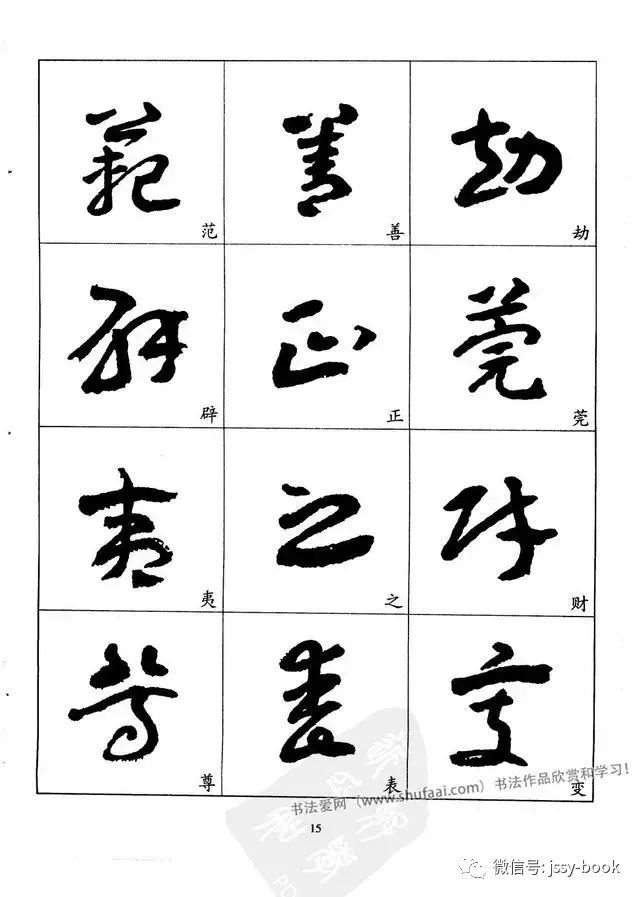 范 善 劫
辟 正 莞
夷 之 财
尊 表 变
书法爱网（www.shufaai.com）书法作品欣赏和学习！
15
微信号: jssy-book